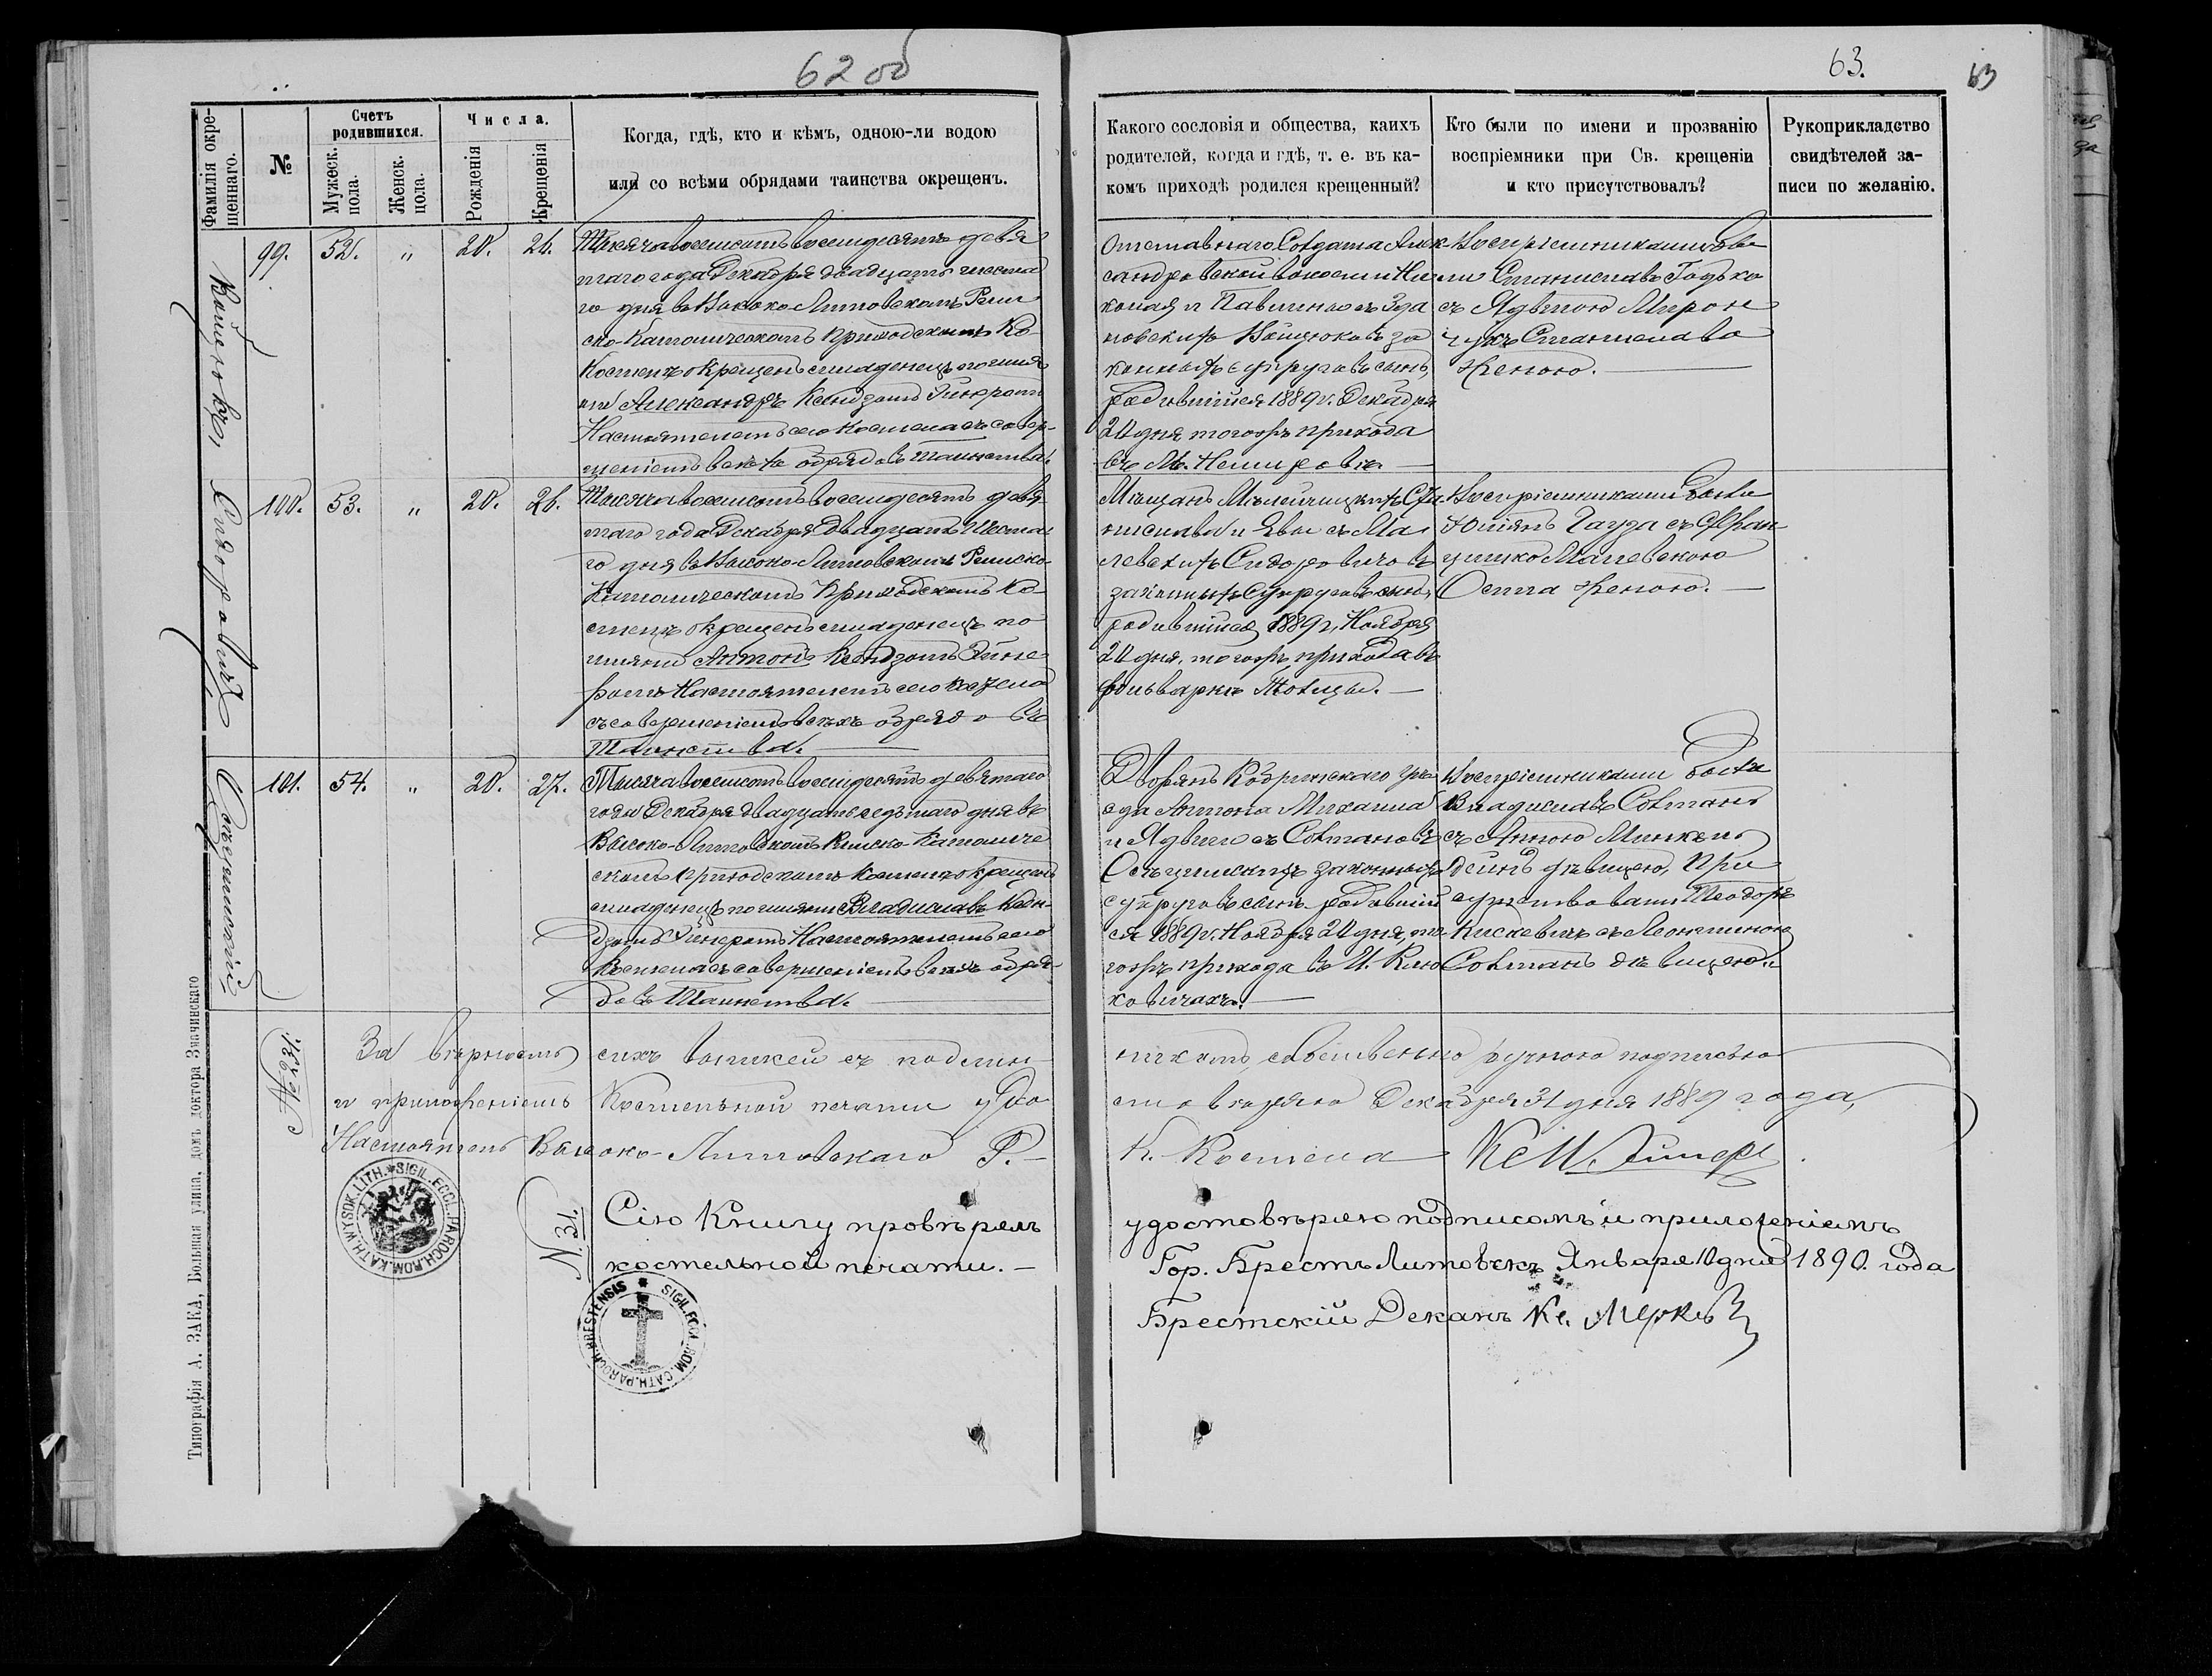 62 об
63.
63
Фамилія окре-
щеннаго.
№
Счетъ
родившихся.
Мужеск.
пола.
Женск.
пола.
Числа.
Рожденія
Крещенія
Когда, гдѣ, кто и кѣмъ, одною-ли водою
или со всѣми обрядами таинства окрещенъ.
Какого сословія и общества, каихъ
родителей, когда и гдѣ, т. е. въ ка-
комъ приходѣ родился крещенный?
Кто были по имени и прозванію
воспріемники при Св. крещеніи
и кто присутствовалъ?
Рукоприкладство
свидѣтелей за-
писи по желанію.
99. 52. " 20. 26.
Тысяча восемьсотъ восемдесятъ девя
таго года Декабря двадцать шеста
го дня въ Высоко Литовскомъ Рим
ско-Католическомъ Приходскомъ Ко-
Костелѣ окрещенъ младенецъ по имя
ни Александръ Ксендзомъ
Настоятелемъ сего Костела съ совер-
шеніемъ всѣхъ обрядовъ Таинства.
Отставнаго Солдата Алек-
сандровской волости Ни
колая и Павлины съ Зда
новскихъ Войцюковъ за
конныхъ супруговъ сынъ,
родившійся 1889 г. Декабря
20 дня тогожъ прихода
въ М. Немировѣ.
Воспріемниками бы
ли Станиславъ Годько
съ Ядвигою Мирон
чукъ Станислава
женою.
Сидоровичъ
100. 53. " 20. 26.
Тысяча восемьсотъ восемдесятъ девя
таго года Декабря Двадцать Шеста
го дня въ Высоко-Литовскомъ Римско-
Католическомъ Приходскомъ Ко
стелѣ окрещенъ младенецъ по
имяни Антонъ Ксендзомъ
Настоятелемъ сего Костела
съ совершеніемъ всѣхъ обрядовъ
Таинства.
Мѣщанъ Мѣлейчицкихъ Ста
нислава и Евы съ Ма
левскихъ Сидоровичовъ
законныхъ Супруговъ сынъ,
родившійся 1889 г. Ноября
20 дня, тогожъ прихода въ
фольваркѣ Токары.
Воспріемниками были
Гауза съ Фран
цишко Малевскою
Осипа женою.
101. 54. " 20. 27.
Тысяча восемьсотъ восемдесятъ девятаго
года Декабря двадцать седьмаго дня въ
Высоко-Литовскомъ Римско-Католиче
скомъ приходскомъ костелѣ окрещенъ
младенецъ по имяни Владиславъ Ксен-
дзомъ Настоятелемъ сего
Костела съ совершеніемъ всѣхъ обря-
довъ Таинства.
Дворянъ Кобринскаго уѣз
да Антона Михаила
и Ядвиги съ Солтановъ
законныхъ
супруговъ сынъ родившій
ся 1889 г. Ноября 20 дня, то
гожъ прихода въ И. Клю
ковичахъ.
Воспріемниками были
Владиславъ Солтанъ
съ Анною Минкель
дѣвицею, При
сутствовали Теодоръ
Кискевичъ съ Леонтиною
Солтанъ дѣвицею.
За вѣрность сихъ копией съ подлин-
никомъ, собственно ручною подписью
и приложеніемъ Костельной печати удо
стовѣряю Декабря 31 дня 1889 года,
Настоятель Высоко-Литовскаго Р.-
К. Костела
SIGIL.ECCL.PAROCH.ROM.KATH.WYSOK.LITH.
N. 31.
Сію Книгу провѣрялъ
удостовѣряю подписомъ и приложеніемъ
костельной печати.
Гор. Брестъ Литовскъ Января 10 дня 1890. года
Брестскій Деканъ Кс.
SIGIL.ECCL.ROM.CATH.PAROCH.BRESTENSIS
Типографія А. ЗАКА, Большая улица, домъ доктора Значинскаго